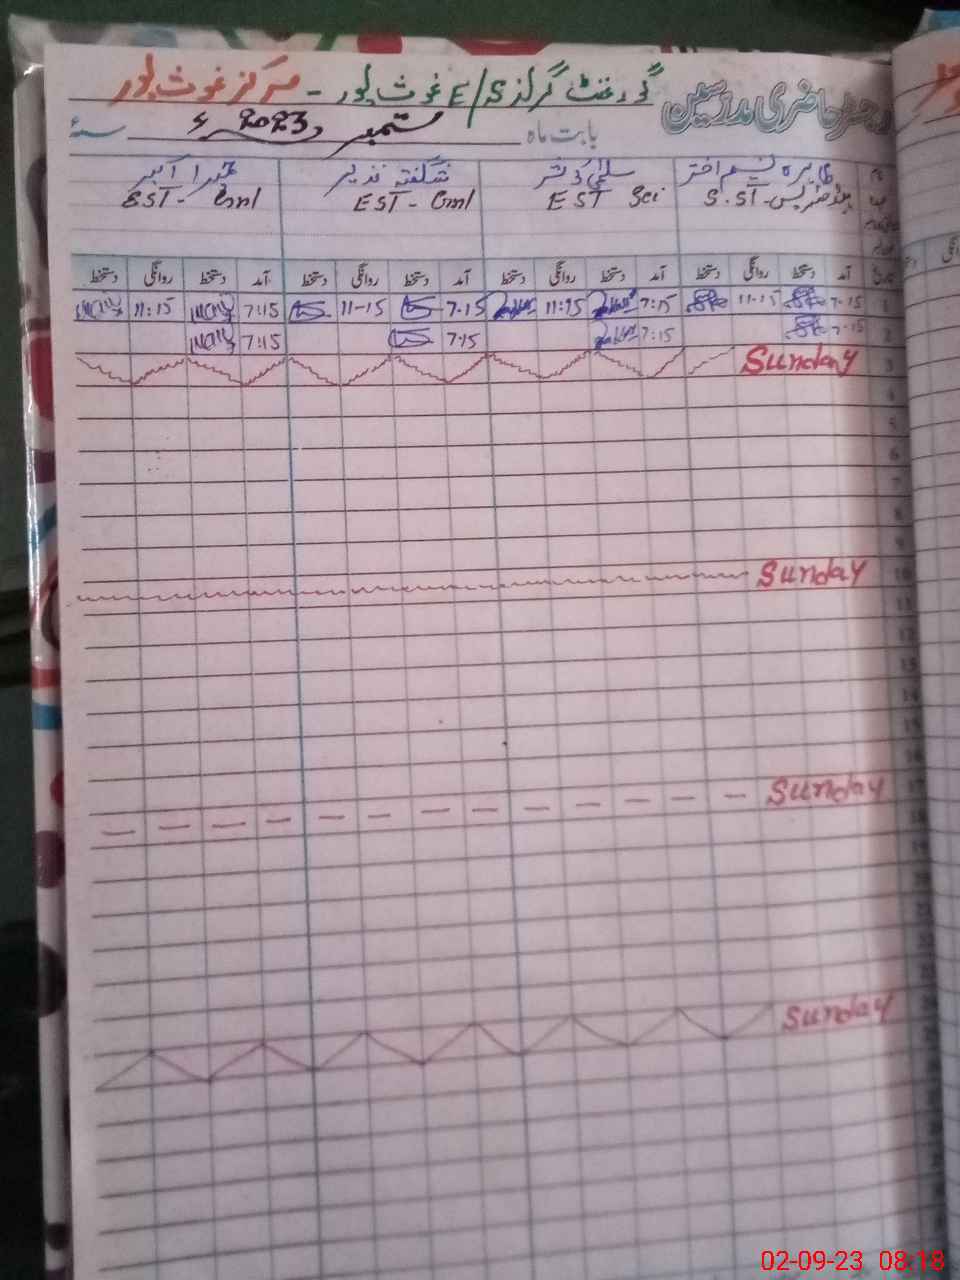 گورنمنٹ گرلز E/S غوث پور - مرکز غوث پور
رجسٹر حاضری مدرسین
بابت ماہ ستمبر 2023ء سنۂ
نسیم اختر سلمیٰ شگفتہ نذیر
S.ST - ہیڈمسٹریس EST Sci EST - Gnl EST - Gnl
تاریخ آمد دستخط روانگی دستخط آمد دستخط روانگی دستخط آمد دستخط روانگی دستخط آمد دستخط روانگی دستخط
1 7-15 11-15 7:15 11:15 7.15 11-15 7:15 11:15
2 7-15 7:15 7:15 7:15
3 Sunday
4
5
6
7
8
9
10 Sunday
11
12
13
14
15
16
17 Sunday
18
19
Sunday
02-09-23 08:18